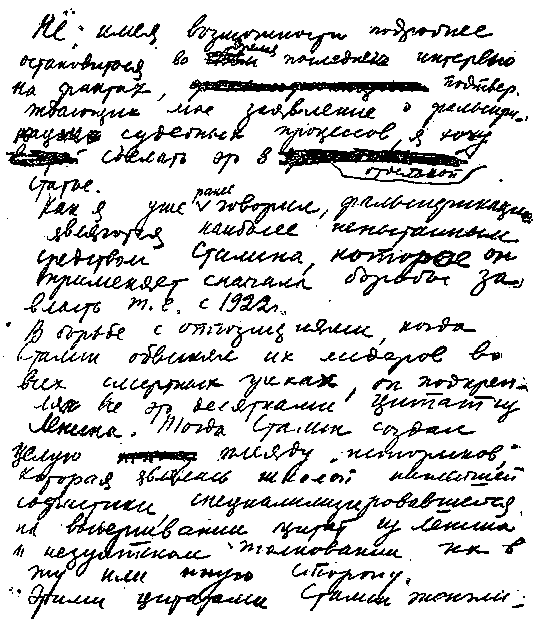 Не имея возможности подробнее
остановиться во время последнего интервью
на фактах, подтвер-
ждающих мое заявление о фальсифи-
кации судебных процессов, я хочу
сделать это в
отдельной
статье.
Как я уже ранее говорил, фальсификации
являются наиболее испытанным
средством Сталина, которое он
применяет сначала борьбы за
власть т.е. с 1922г.
В борьбе с оппозициями, когда
Сталин обвинял их лидеров во
всех смертных грехах, он подкреп-
лял все это десятками цитат из
Ленина. Тогда Сталин создал
целую плеяду "историков",
которая явилась школой
софистики, специализировавшейся
на выдергивании цитат из Ленина
и толковании их в
ту или иную сторону.
Этими цитатами Сталин